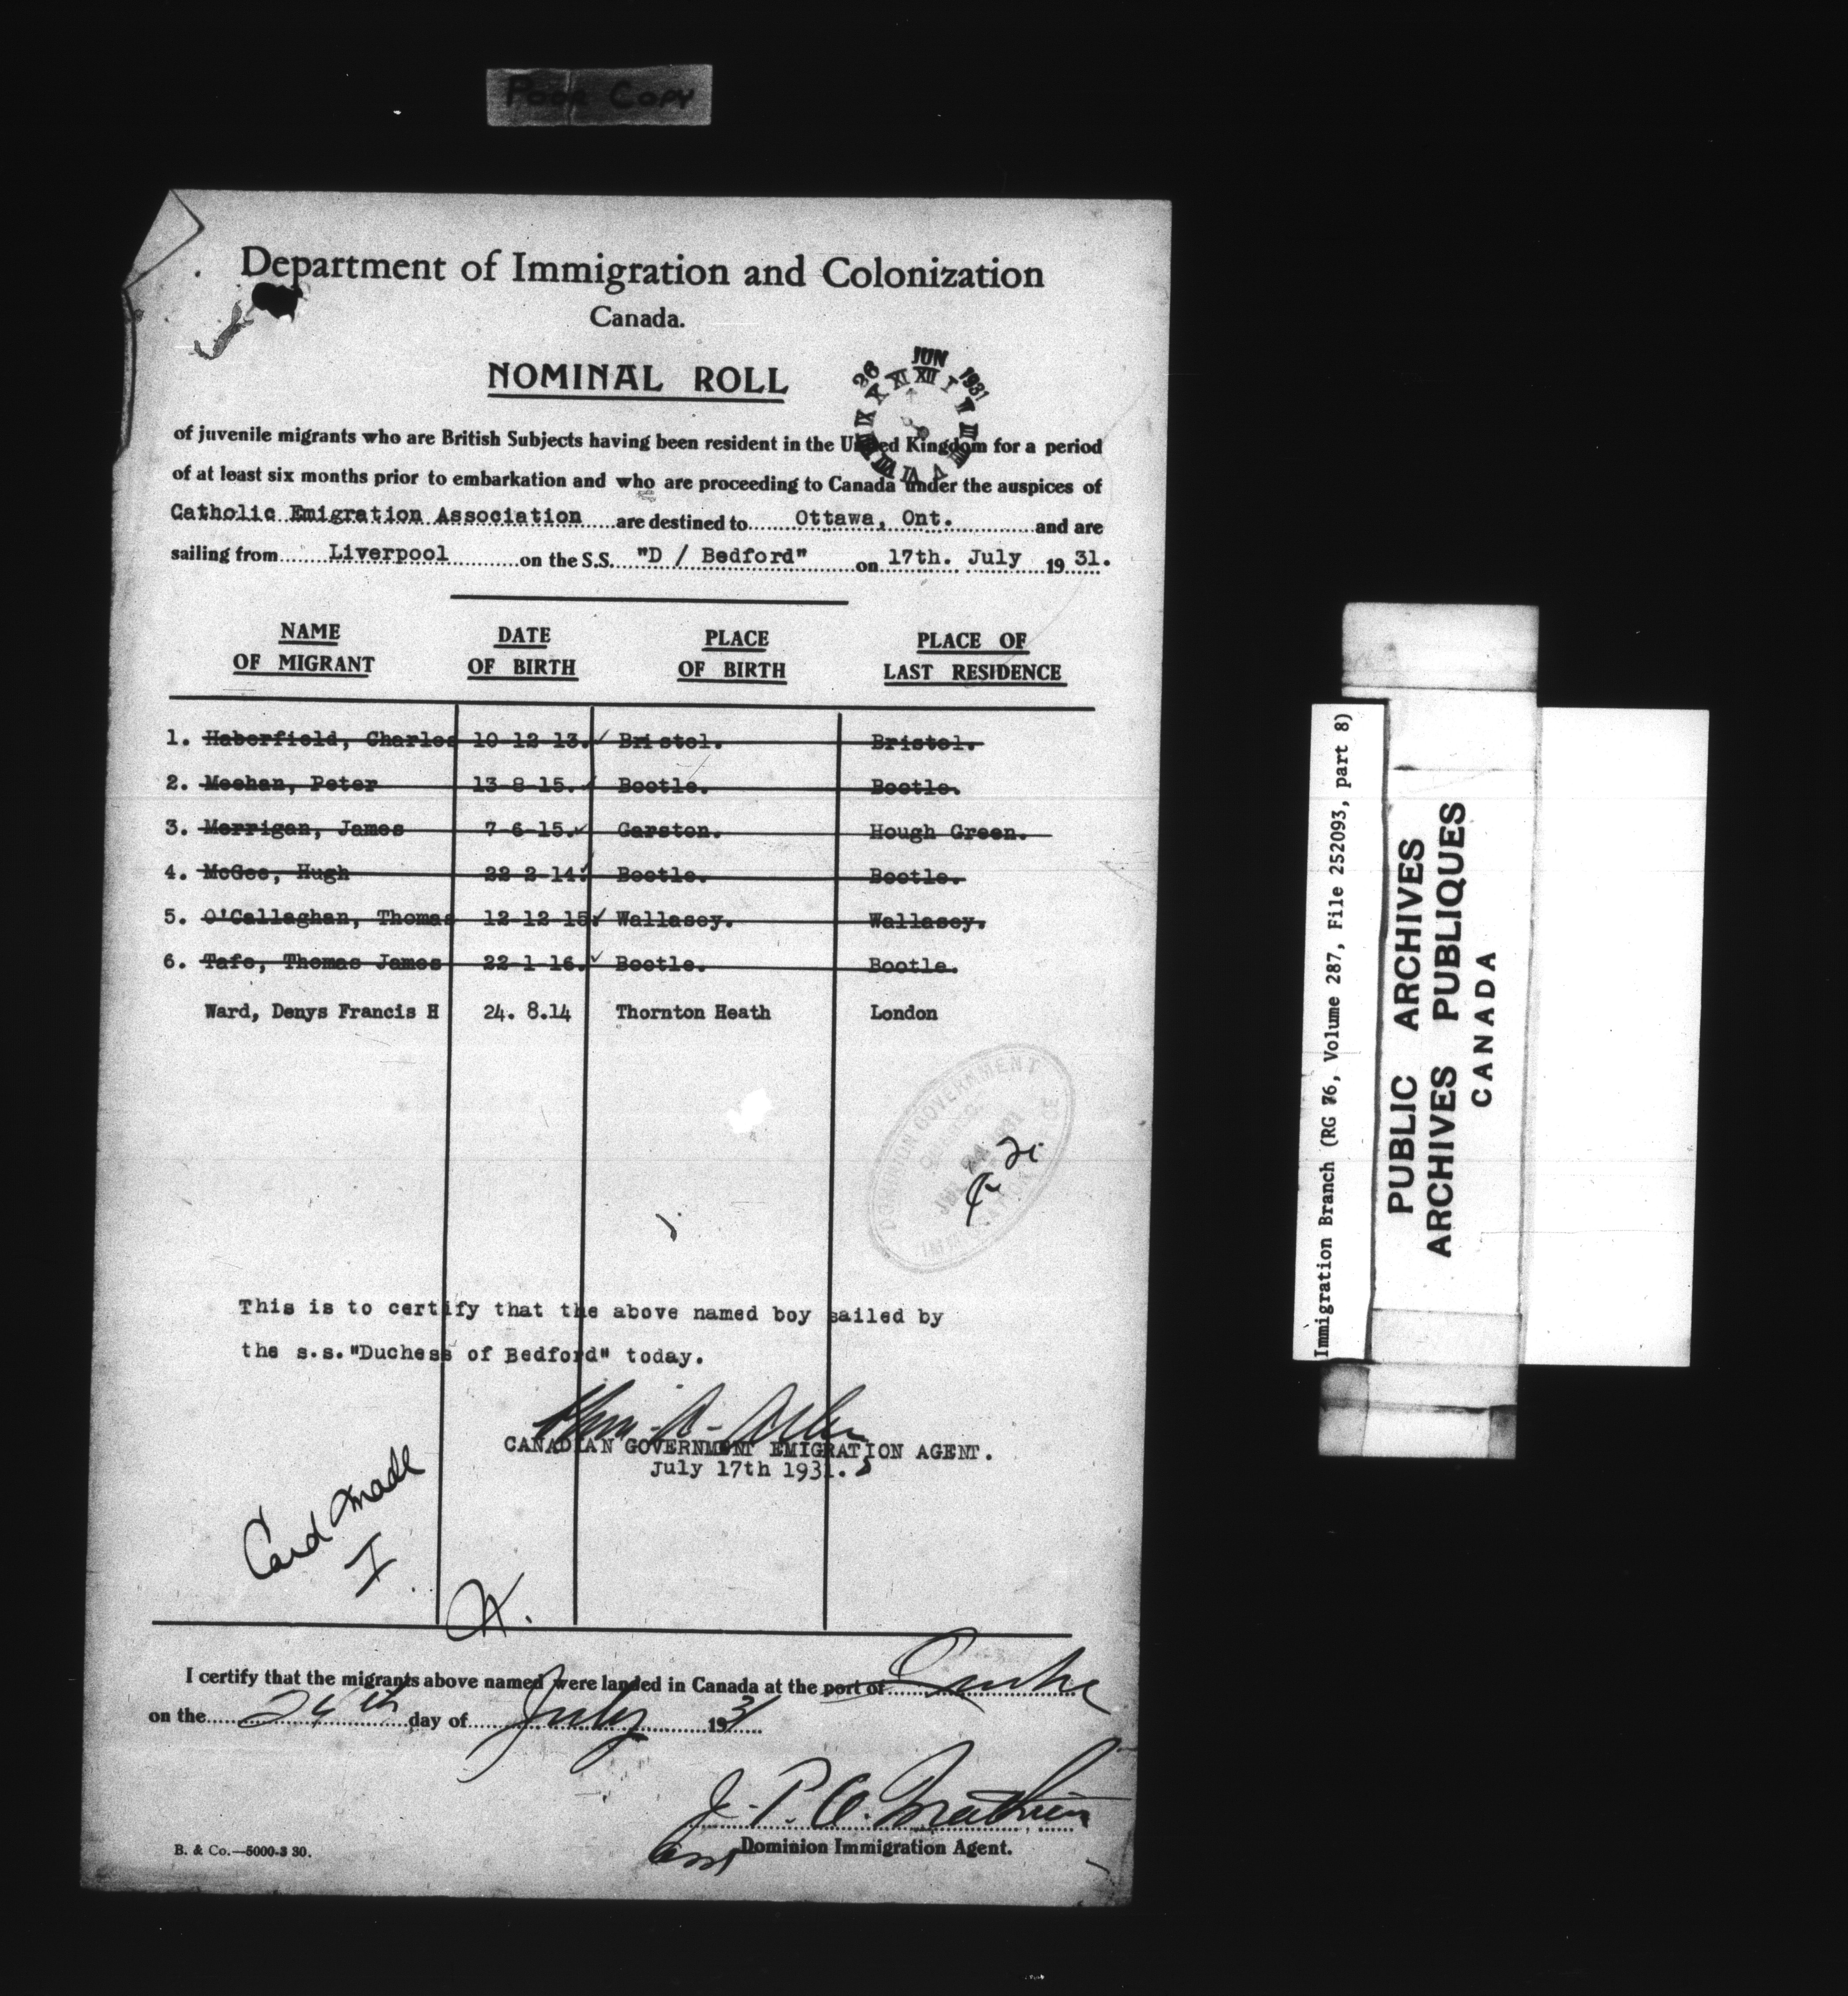 Poor Copy
Department of Immigration and Colonization
Canada.
NOMINAL ROLL
26 JUN 1931
XII I II III IIII V VI VII VIII IX X XI
of juvenile migrants who are British Subjects having been resident in the United Kingdom for a period
of at least six months prior to embarkation and who are proceeding to Canada under the auspices of
Catholic Emigration Association are destined to Ottawa, Ont. and are
sailing from Liverpool on the S.S. "D / Bedford" on 17th. July 19 31.
NAME OF MIGRANT DATE OF BIRTH PLACE OF BIRTH PLACE OF LAST RESIDENCE
1. Haberfield, Charles 10-12-13. Bristol. Bristol.
2. Meehan, Peter 13-8-15. Bootle. Bootle.
3. Merrigan, James 7-6-15. Garston. Hough Green.
4. McGee, Hugh 22-2-14. Bootle. Bootle.
5. O'Callaghan, Thomas 12-12-15. Wallasey. Wallasey.
6. Tafe, Thomas James 22-1-16. Bootle. Bootle.
Ward, Denys Francis H 24. 8.14 Thornton Heath London
DOMINION GOVERNMENT
This is to certify that the above named boy sailed by
the s.s."Duchess of Bedford" today.
CANADIAN GOVERNMENT EMIGRATION AGENT.
July 17th 1931.
Card made
I
I certify that the migrants above named were landed in Canada at the port of
on the 24th day of July 1931
J. P. O. Mathieu
Dominion Immigration Agent.
B. & Co.—5000-3 30.
Immigration Branch (RG 76, Volume 287, File 252093, part 8)
PUBLIC ARCHIVES
ARCHIVES PUBLIQUES
CANADA